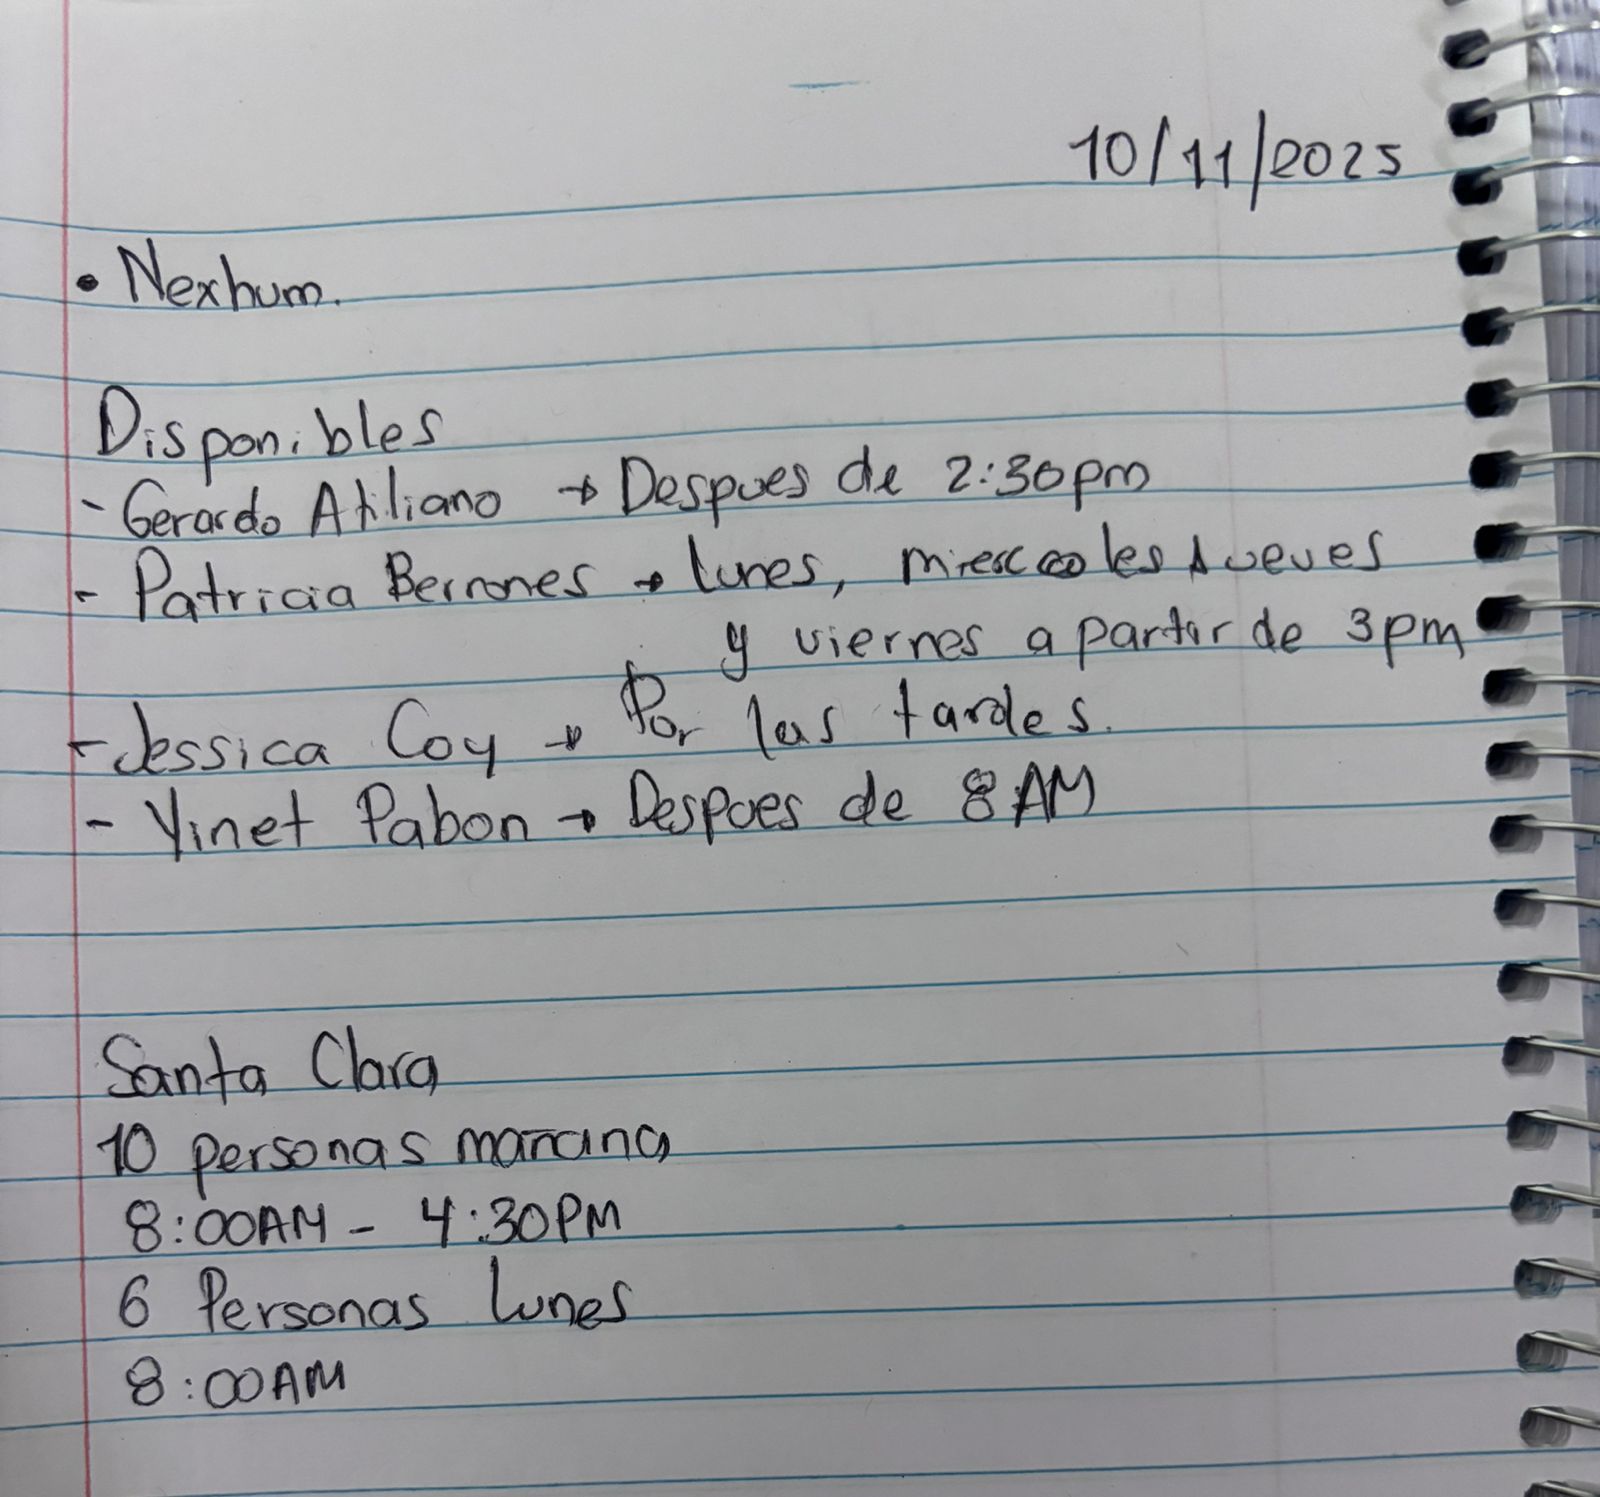 10/11/2025
• Nexhum.
Disponibles
- Gerardo Atiliano → Despues de 2:30pm
- Patricia Berrones → lunes, miercoles Jueves
y viernes a partir de 3pm
- Jessica Coy → Por las tardes.
- Yinet Pabon → Despues de 8 AM
Santa Clara
10 personas mañana
8:00AM - 4:30PM
6 Personas lunes
8:00AM